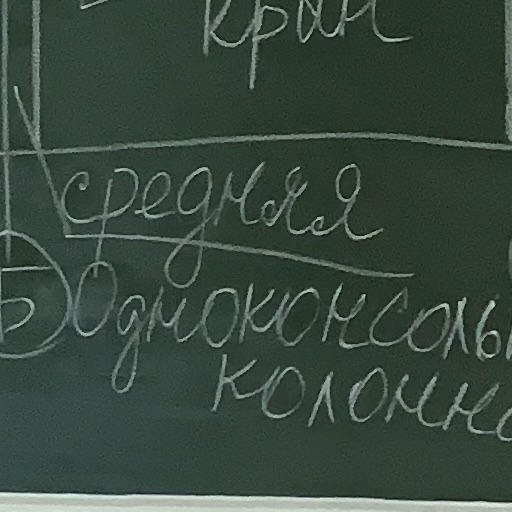 Крын
средняя
Б Одноконсоль
колонн